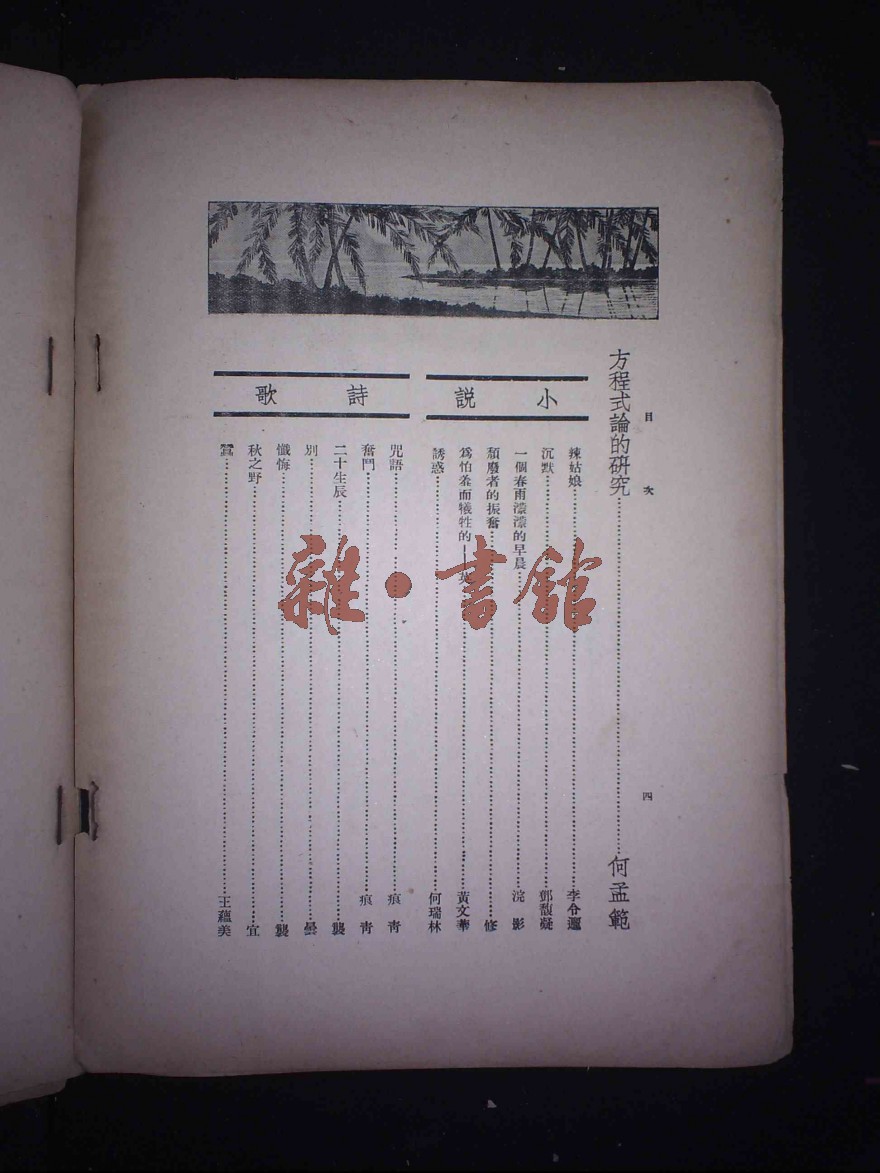 目次 四
方程式論的研究 何孟範
小說
辣姑娘 李令邇
沉默 鄧馥凝
一個春雨濛濛的早晨 浣影
頹廢者的振奮 修
為怕羞而犧牲的——英 黃文華
誘惑 何瑞林
詩歌
咒語 痕青
奮鬥 痕青
二十生辰
別 曇
懺悔
秋之野 宜
王蘊美
雜·書館